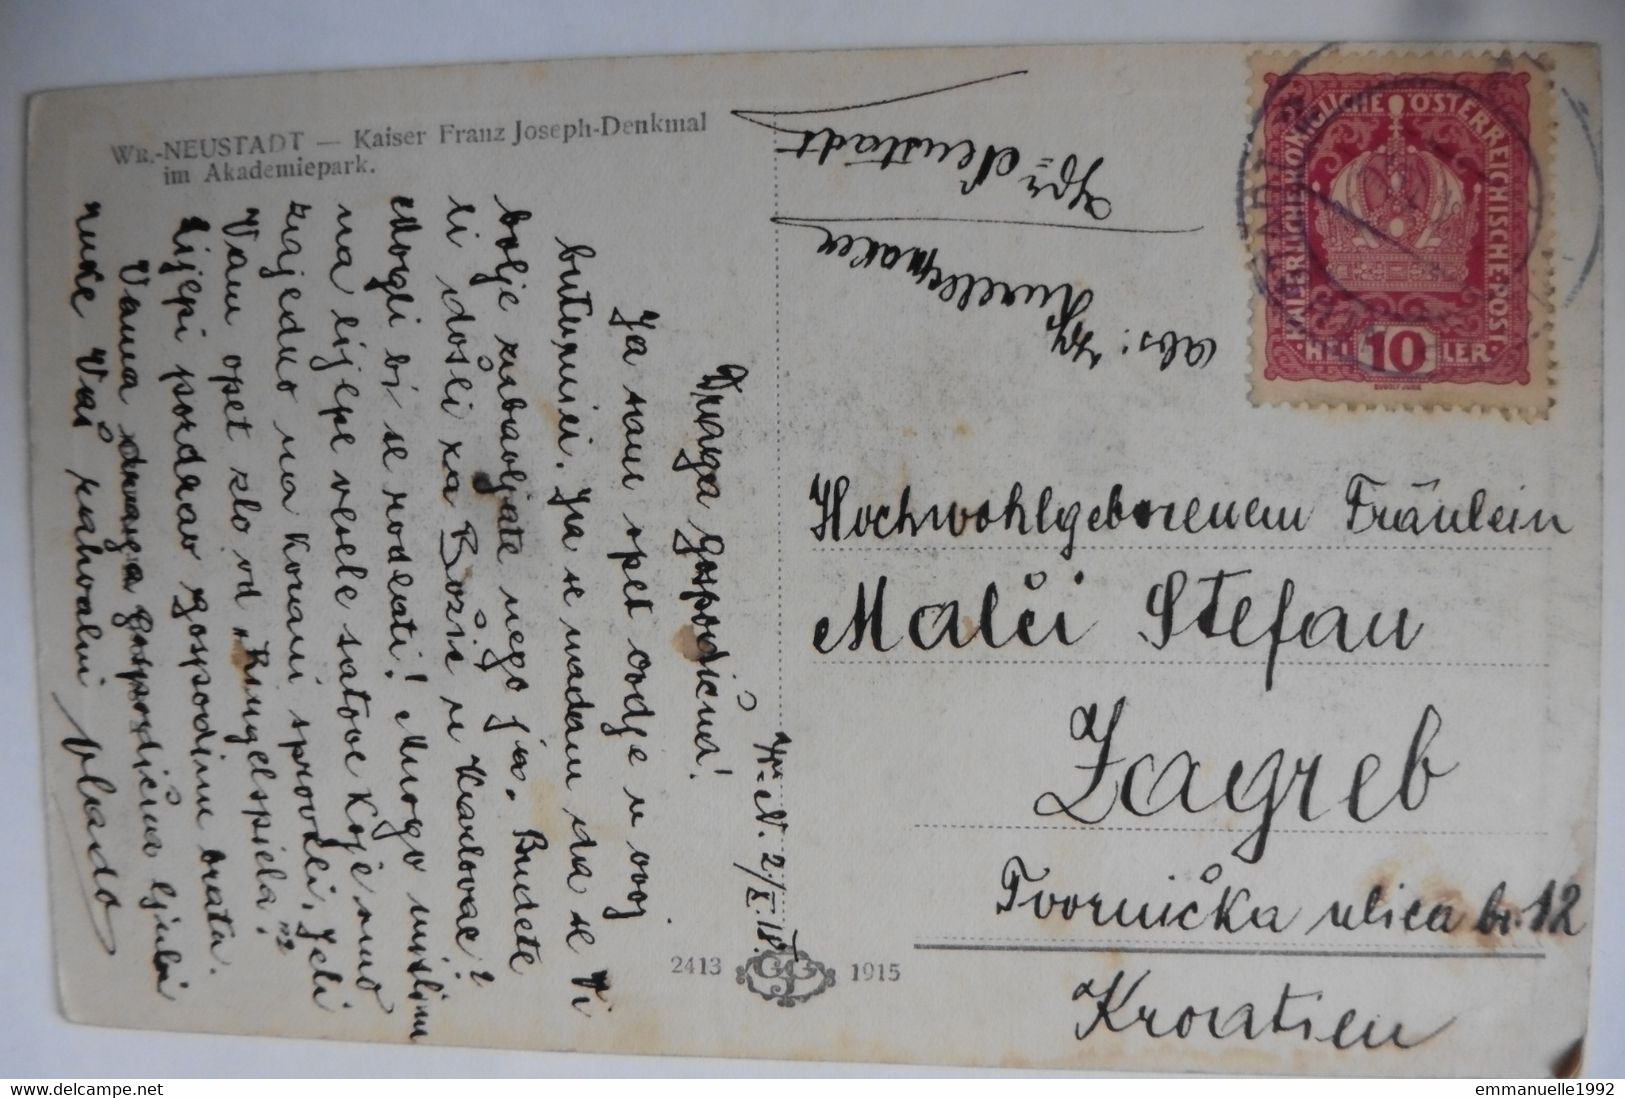 WR.-NEUSTADT — Kaiser Franz Joseph-Denkmal
im Akademiepark.
W.-N. 2/X 18.
Draga gospodična!
Ja sam opet ovdje u ovoj
butornici. Ja se nadam da se Vi
bolje zabavljate nego ja. Budete
li došli za Božić u Karlovac?
Mogli bi se rodlati! Mnogo mislim
na lijepe vesele satove koje smo
zajedno na Korani sproveli. Jeli
Vam opet zlo od „Ringelspiela"?
Lijepi pozdrav gospodinu bratu.
Vama draga gospodična ljubi
ruke Vaš zahvalni
Vlado
Abs:
Neustadt
KAISERLICHE KÖNIGLICHE ÖSTERREICHISCHE POST
10
HELLER
RUDOLF JUNK
Hochwohlgeborenem Fräulein
Malči Štefan
Zagreb
Tvornička ulica br. 12
Kroatien
2413
1915
emmanuelle1992